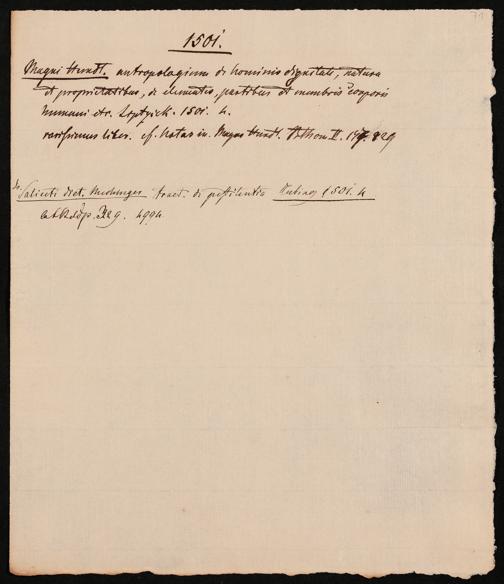 1501.
Magni Hundt. antropologium de hominis dignitate, natura
et proprietatibus, de elementis, partibus et membris corporis
humani etc. Liptzick. 1501. 4.
rarissimus liber. cf. Notas in Magno Hundt. II.
Saliceti dict. Mechinger tract. de pestilentia Tubing 1501. 4